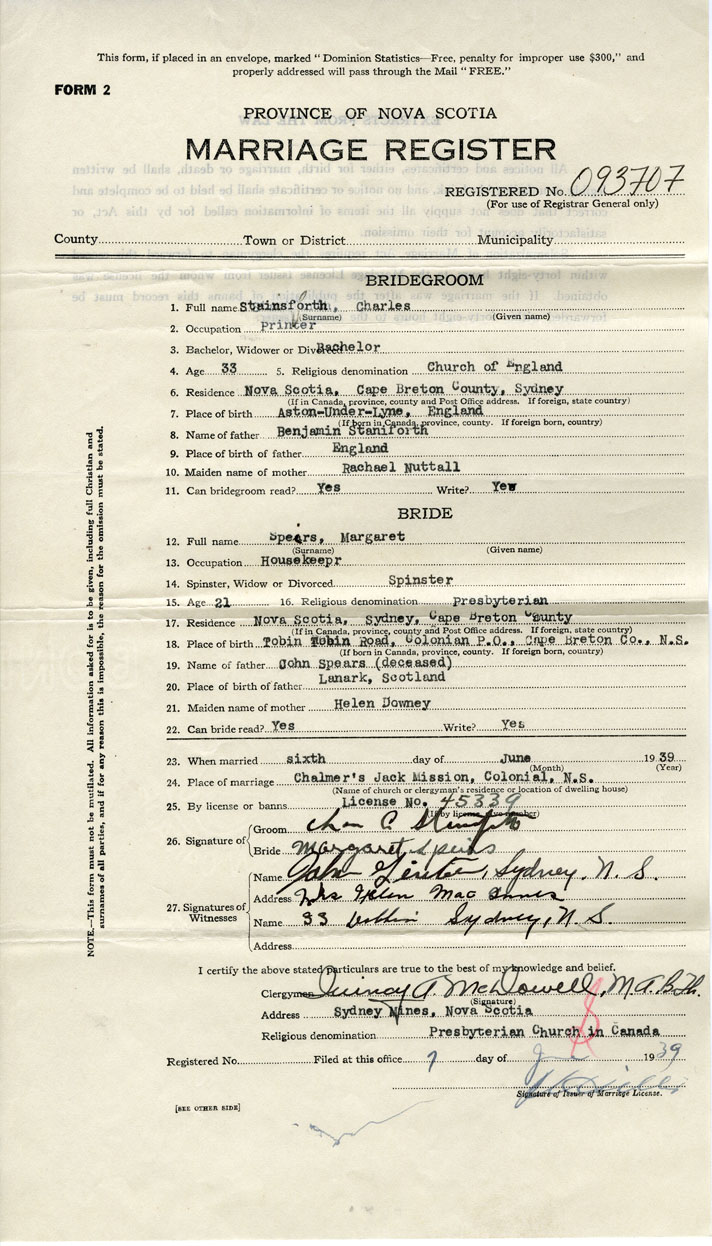 This form, if placed in an envelope, marked "Dominion Statistics—Free, penalty for improper use $300," and
properly addressed will pass through the Mail "FREE."
FORM 2
PROVINCE OF NOVA SCOTIA
MARRIAGE REGISTER
REGISTERED No. 093707
(For use of Registrar General only)
County Town or District Municipality
BRIDEGROOM
1. Full name Stainsforth, Charles
(Surname) (Given name)
2. Occupation Printer
3. Bachelor, Widower or Divorced Bachelor
4. Age 33 5. Religious denomination Church of England
6. Residence Nova Scotia, Cape Breton County, Sydney
(If in Canada, province, county and Post Office address. If foreign, state country)
7. Place of birth Aston-Under-Lyne, England
(If born in Canada, province, county. If foreign born, country)
8. Name of father Benjamin Staniforth
9. Place of birth of father England
10. Maiden name of mother Rachael Nuttall
11. Can bridegroom read? Yes Write? Yes
BRIDE
12. Full name Spears, Margaret
(Surname) (Given name)
13. Occupation Housekeepr
14. Spinster, Widow or Divorced Spinster
15. Age 21 16. Religious denomination Presbyterian
17. Residence Nova Scotia, Sydney, Cape Breton County
(If in Canada, province, county and Post Office address. If foreign, state country)
18. Place of birth Tobin Tobin Road, Colonian P.O., Cape Breton Co., N.S.
(If born in Canada, province, county. If foreign born, country)
19. Name of father John Spears (deceased)
20. Place of birth of father Lanark, Scotland
21. Maiden name of mother Helen Downey
22. Can bride read? Yes Write? Yes
23. When married sixth day of June 1939
(Month) (Year)
24. Place of marriage Chalmer's Jack Mission, Colonial, N.S.
(Name of church or clergyman's residence or location of dwelling house)
25. By license or banns License No. 45339
(If by license, number)
26. Signature of Groom Chas C.
Bride Margaret Speirs
27. Signatures of Witnesses Name John Sydney, N. S.
Address Mrs Helen Mac Innes
Name 33 Sydney, N. S.
Address
I certify the above stated particulars are true to the best of my knowledge and belief.
Clergyman Quincy A. McDowell, M.A. B.Th.
(Signature)
Address Sydney Mines, Nova Scotia
Religious denomination Presbyterian Church in Canada
Registered No. Filed at this office 7 day of 1939
Signature of Issuer of Marriage License.
[SEE OTHER SIDE]
NOTE.—This form must not be mutilated. All information asked for is to be given, including full Christian and
surnames of all parties, and if for any reason this is impossible, the reason for the omission must be stated.